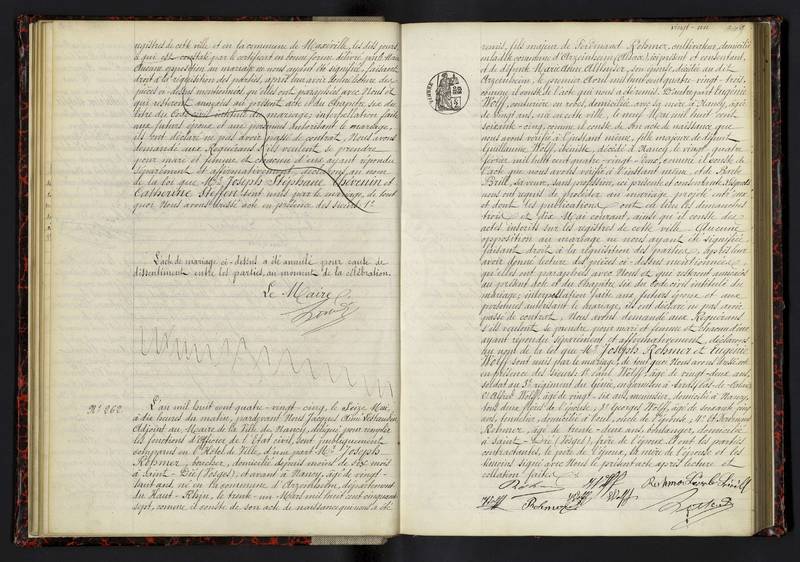 registres de cette ville et en la commune de Maxéville, les dits jours,
à qui est constaté par le certificat en bonne forme délivré par le Maire
Aucune opposition au mariage ne nous ayant été signifiée, faisant
droit à la réquisition des parties, après leur avoir donné lecture des
pièces ci-dessus mentionnées, qu'elles ont paraphées avec Nous et
qui resteront annexées au présent acte et du Chapitre six du
titre du Code civil intitulé du mariage, interpellation faite
aux futurs époux et aux personnes autorisant le mariage,
ils ont déclaré ne pas avoir passé de contrat, Nous avons
demandé aux Requérants s'ils veulent se prendre
pour mari et femme et chacun d'eux ayant répondu
séparément et affirmativement, déclarons au nom
de la loi que Mrs Joseph Stéphane Thévenin et
Catherine sont unis par le mariage, de tout
quoi Nous avons dressé acte en présence des sieurs 1°
L'acte de mariage ci-dessus a été annulé pour cause de
dissentiment entre les parties, au moment de la célébration.
Le Maire
N° 262.
L'an mil huit cent quatre-vingt-cinq, le Seize Mai,
à dix heures du matin, pardevant Nous Jacques
Adjoint au Maire de la Ville de Nancy, délégué pour remplir
les fonctions d'Officier de l'Etat civil, sont publiquement
comparus en l'Hôtel de Ville, d'une part Mr Joseph
Rohmer, boucher, domicilié depuis moins de six mois
à Saint-Dié (Vosges), avant à Nancy, âgé de vingt-
huit ans, né en la commune d'Arzenheim, département
du Haut-Rhin, le trente-un Mars mil huit cent cinquante-
sept, comme il conste de son acte de naissance qui nous a été
vingt-un
remis, fils majeur de Ferdinand Rohmer, cultivateur, domicilié
en ladite commune d'Arzenheim (Alsace), ici présent et consentant,
et de défunte Marie Anne son épouse, décédée au dit
Arzenheim, le premier Avril mil huit cent quatre-vingt-trois,
comme il conste de l'acte qui nous a été remis. D'autre part Eugénie
Wolff, couturière en robes, domiciliée avec sa mère à Nancy, âgée
de vingt ans, née en cette ville, le neuf Mai mil huit cent
soixante-cinq, comme il conste de son acte de naissance que
nous avons vérifié à l'instant même, fille mineure de défunt
Guillaume Wolff, décédé à Nancy, le vingt-quatre
février mil huit cent quatre-vingt-deux, comme il conste de
l'acte que nous avons vérifié à l'instant même, et de Barbe
Brill, sa veuve, sans profession, ici présente et consentante. Lesquels
nous ont requis de procéder au mariage projeté entre eux
et dont les publications ont été faites les dimanches
trois et dix Mai courant, ainsi qu'il conste des
actes inscrits sur les registres de cette ville. Aucune
opposition au mariage ne nous ayant été signifiée,
faisant droit à la réquisition des parties, après leur
avoir donné lecture des pièces ci-dessus mentionnées
qu'elles ont paraphées avec Nous et qui resteront annexées
au présent acte et du Chapitre six du code civil intitulé du
mariage, interpellation faite aux futurs époux et aux
personnes autorisant le mariage, ils ont déclaré ne pas avoir
passé de contrat, Nous avons demandé aux Requérants
s'ils veulent se prendre pour mari et femme et chacun d'eux
ayant répondu séparément et affirmativement, déclarons
au nom de la loi que Mrs Joseph Rohmer et Eugénie
Wolff sont unis par le mariage, de tout quoi Nous avons dressé acte
en présence des sieurs 1° Paul Wolff, âgé de vingt-deux ans,
soldat au 3e régiment du Génie,
2° Alfred Wolff, âgé de vingt-six ans, menuisier, domicilié à Nancy,
tous deux frères de l'épouse, 3° Georges Wolff, âgé de soixante-cinq
ans, tonnelier, domicilié à Toul, oncle de l'épouse, 4° Ferdinand
Rohmer, âgé de trente-deux ans, boulanger, domicilié
à Saint-Dié (Vosges), frère de l'époux. Et ont les parties
contractantes, le père de l'époux, la mère de l'épouse et les
témoins signé avec Nous le présent acte après lecture et
collation faites.
Wolff Rohmer Wolff Wolff